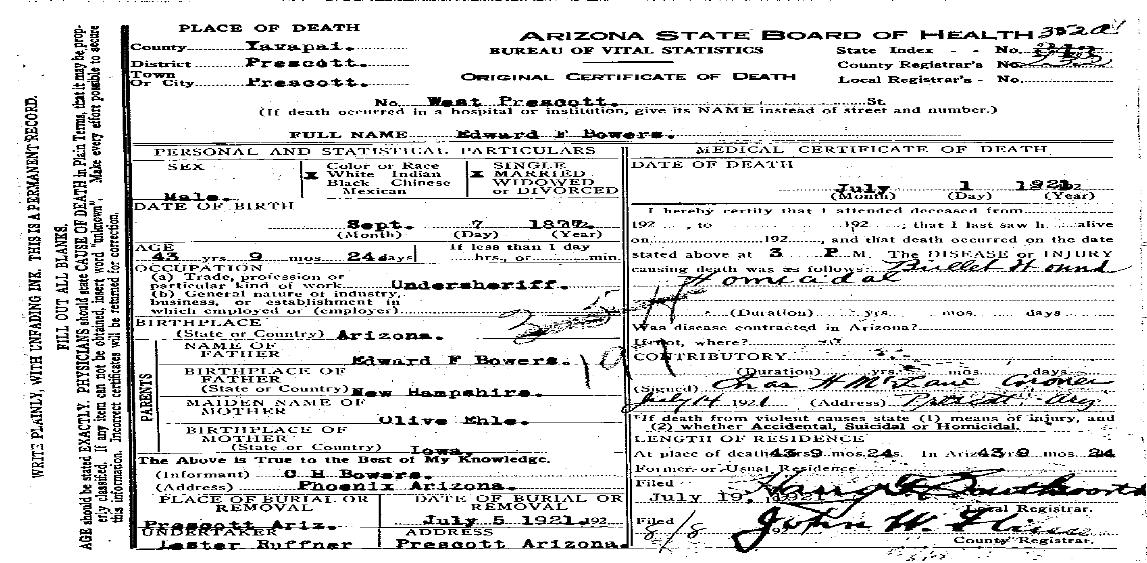 WRITE PLAINLY, WITH UNFADING INK. THIS IS A PERMANENT RECORD.
FILL OUT ALL BLANKS.
AGE should be stated EXACTLY. PHYSICIANS should state CAUSE OF DEATH in Plain Terms, that it may be prop-
erly classified. If any item can not be obtained, insert word "unknown". Make every effort possible to secure
this information. Incorrect certificates will be returned for correction.
PLACE OF DEATH
County Yavapai.
District Prescott.
Town
Or City Prescott.
ARIZONA STATE BOARD OF HEALTH
BUREAU OF VITAL STATISTICS
ORIGINAL CERTIFICATE OF DEATH
State Index - - No.
County Registrar's No.
Local Registrar's - No.
No. West Prescott. St.
(If death occurred in a hospital or institution, give its NAME instead of street and number.)
FULL NAME Edward F Bowers.
PERSONAL AND STATISTICAL PARTICULARS
SEX
Male.
Color or Race
x White Indian
Black Chinese
Mexican
SINGLE
x MARRIED
WIDOWED
or DIVORCED
DATE OF BIRTH
Sept. 7
(Month) (Day) (Year)
AGE
43 yrs 9 mos 24 days
If less than 1 day
hrs, or min
OCCUPATION
(a) Trade, profession or
particular kind of work Undersheriff.
(b) General nature of industry,
business, or establishment in
which employed or (employer)
BIRTHPLACE
(State or Country) Arizona.
PARENTS
NAME OF
FATHER Edward F Bowers.
BIRTHPLACE OF
FATHER
(State or Country) New Hampshire.
MAIDEN NAME OF
MOTHER Olive Ehle.
BIRTHPLACE OF
MOTHER
(State or Country) Iowa,
The Above is True to the Best of My Knowledge.
(Informant) C H Bowers.
(Address) Phoenix Arizona.
PLACE OF BURIAL OR
REMOVAL
Prescott Ariz.
DATE OF BURIAL OR
REMOVAL
July 5 1921. 192
UNDERTAKER
Lester Ruffner
ADDRESS
Prescott Arizona.
MEDICAL CERTIFICATE OF DEATH
DATE OF DEATH
July 1 1921
(Month) (Day) (Year)
I hereby certify that I attended deceased from
192 , to 192 , that I last saw h alive
on 192 , and that death occurred on the date
stated above at 3 P M. The DISEASE or INJURY
causing death was as follows: Bullet Wound
Homicidal
(Duration) yrs. mos. days
Was disease contracted in Arizona?
If not, where?
CONTRIBUTORY
(Duration) yrs mos days
(Signed) Chas H McLane Coroner
July 14 1921 (Address) Prescott Ariz
*If death from violent causes state (1) means of injury, and
(2) whether Accidental, Suicidal or Homicidal.
LENGTH OF RESIDENCE
At place of death 43 yrs 9 mos. 24 s. In Ariz 43 9 mos. 24
Former or Usual Residence
Filed
July 19, 1921 Harry T Southworth
Local Registrar.
Filed
8/8 John W. Flinn
County Registrar.